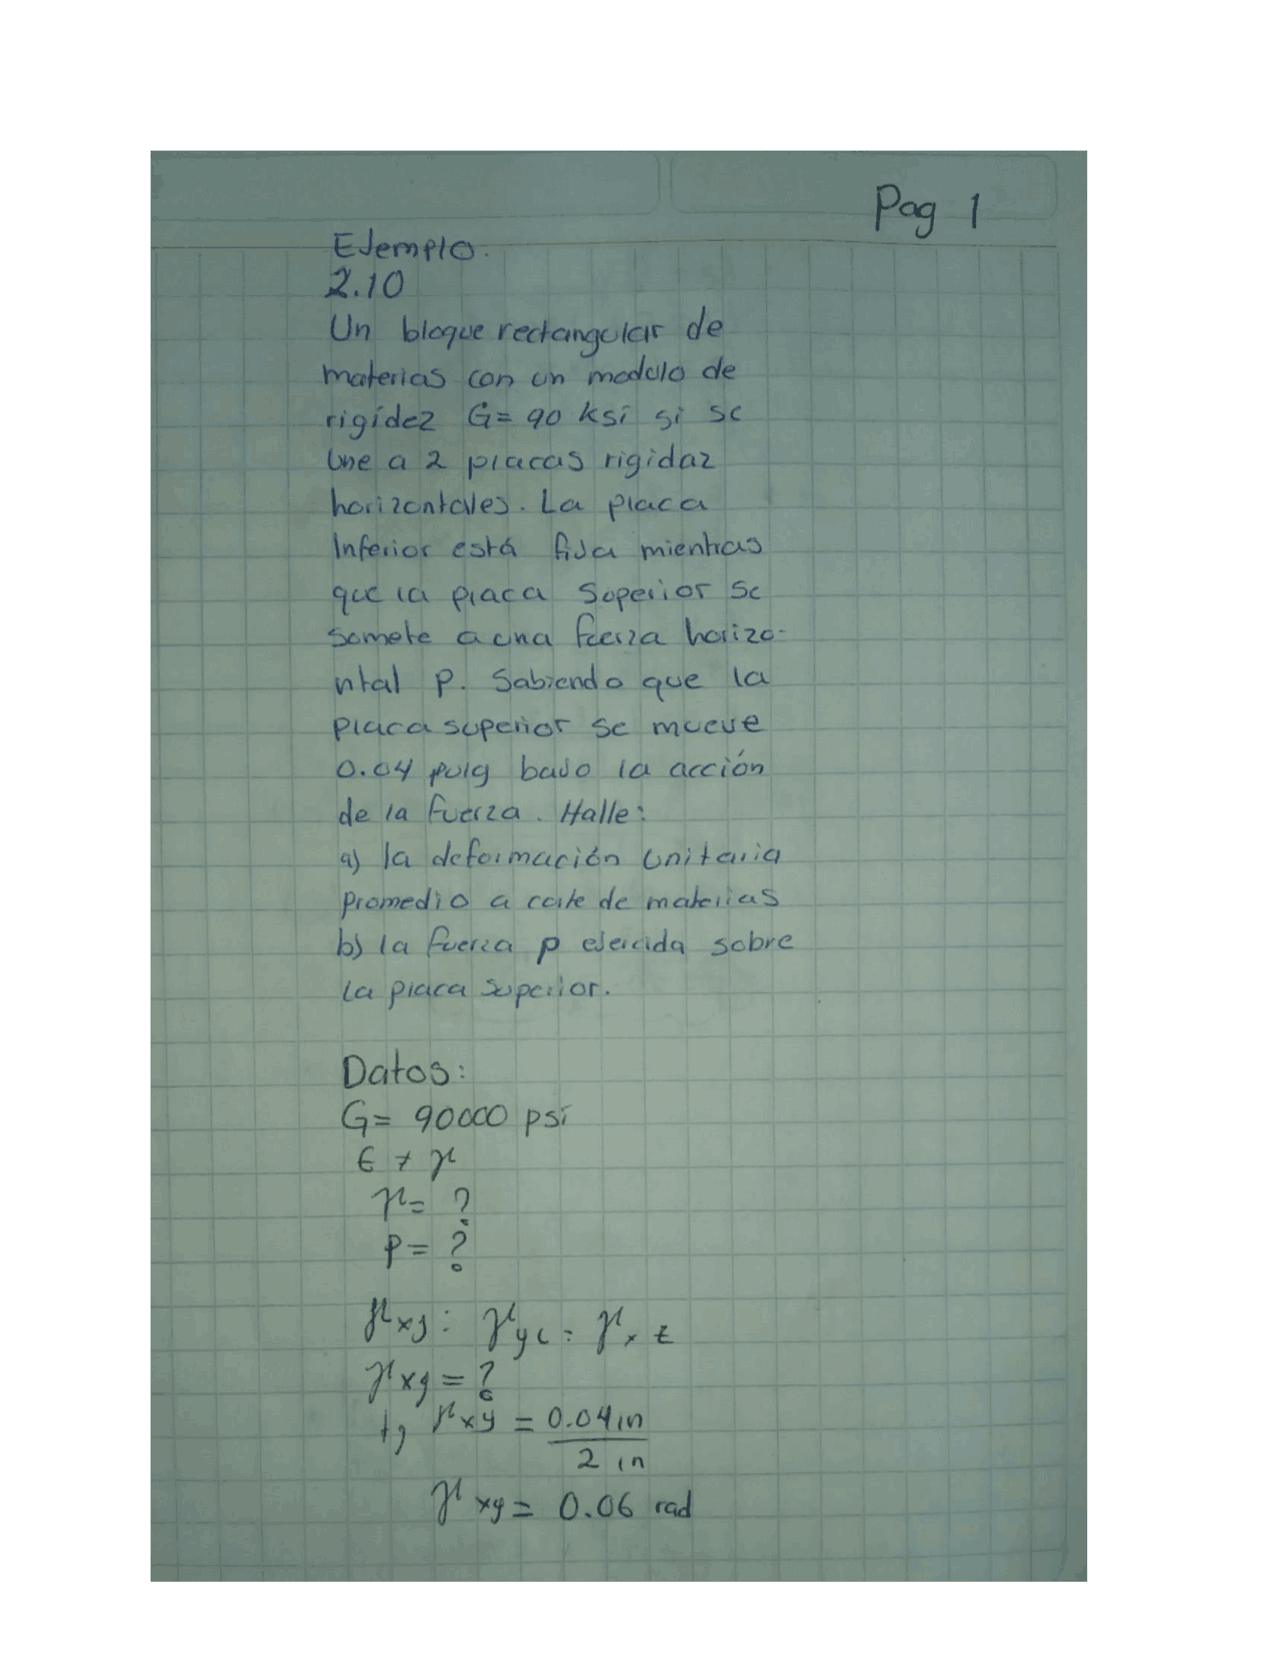 Pag 1
Ejemplo.
2.10
Un bloque rectangular de
materias con un modulo de
rigídez G= 90 ksi si se
une a 2 placas rigidaz
horizontales. La placa
Inferior está fija mientras
que la placa Superior se
somete a una fuerza horizo-
ntal P. Sabiendo que la
placa superior se mueve
0.04 pulg bajo la acción
de la fuerza. Halle:
a) la deformación unitaria
promedio a corte de materias
b) la fuerza p ejercida sobre
La placa superior.
Datos:
G= 90000 psi
ϵ ≠ γ
γ= ?
P= ?
γxy: γyz= γxz
γxy=?
tg γxy = 0.04in
2 in
γxy= 0.06 rad